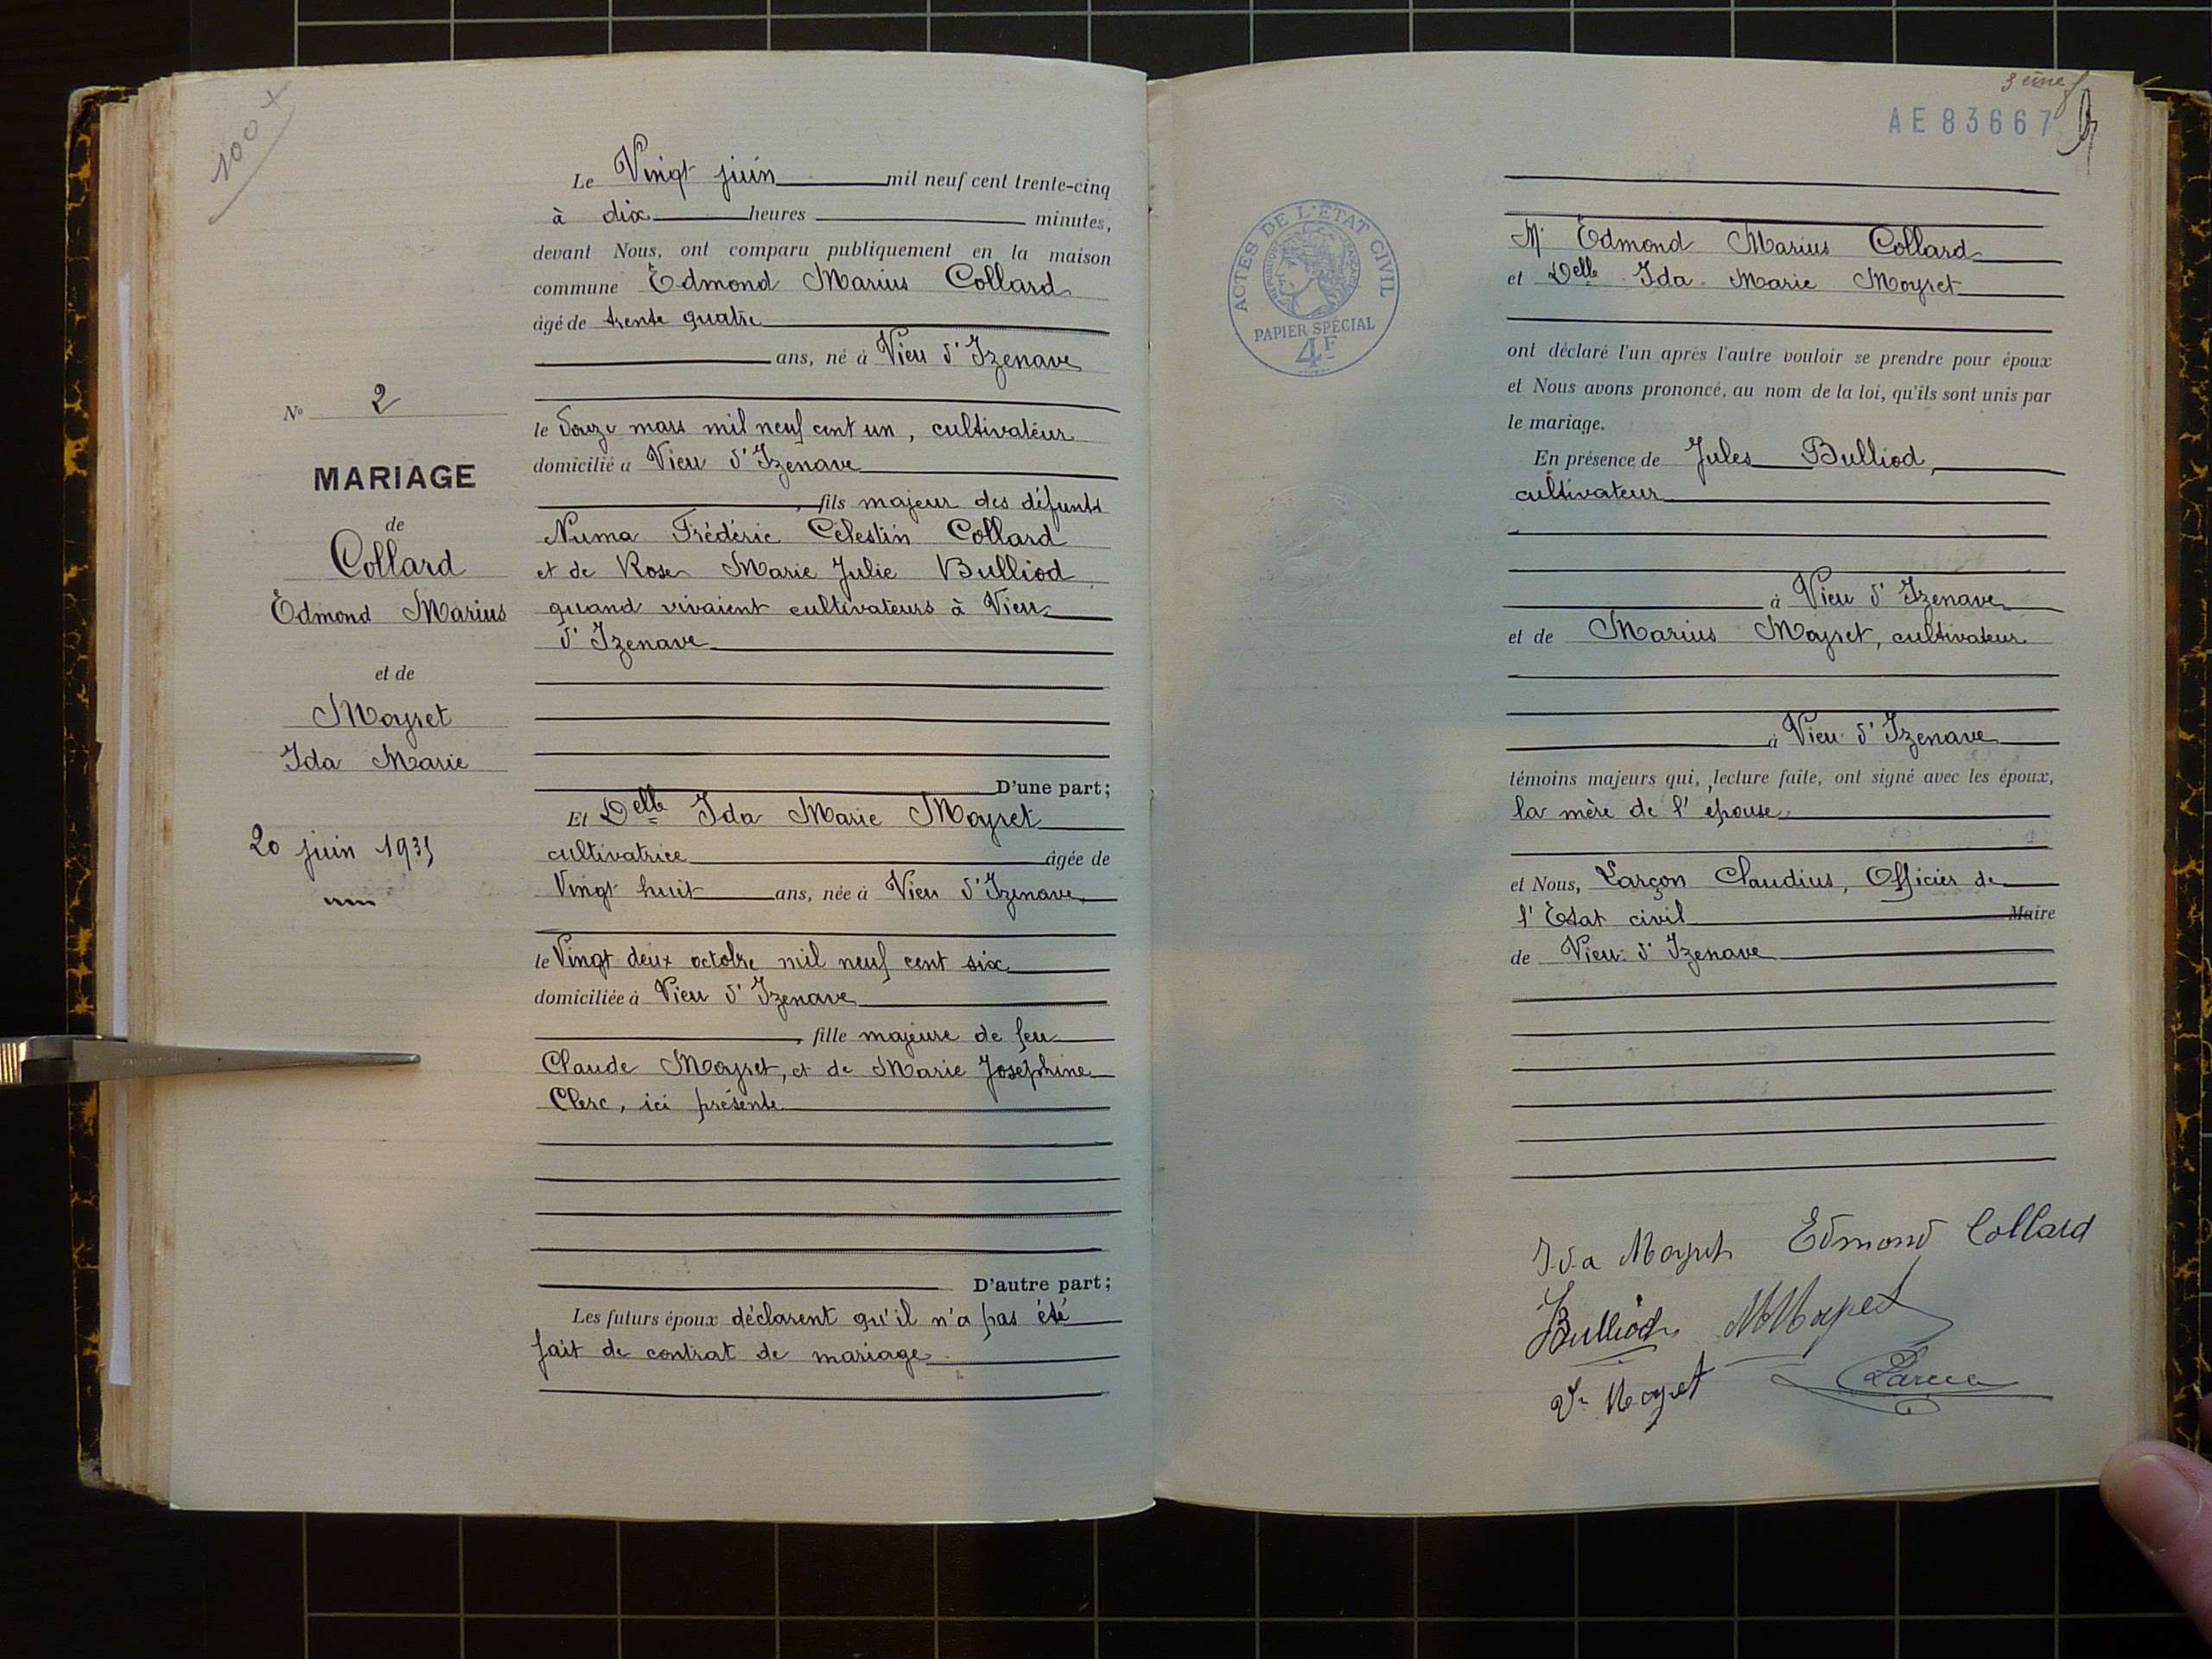 100 x
Le Vingt juin mil neuf cent trente-cinq
à dix heures minutes,
devant Nous, ont comparu publiquement en la maison
commune Edmond Marius Collard
âgé de trente quatre
ans, né à Vieu d'Izenave
le douze mars mil neuf cent un, cultivateur
domicilié à Vieu d'Izenave
fils majeur des défunts
Numa Frédéric Célestin Collard
et de Rose Marie Julie Bulliod
quand vivaient cultivateurs à Vieu
d'Izenave
D'une part;
Et Delle Ida Marie Moyret
cultivatrice âgée de
Vingt huit ans, née à Vieu d'Izenave
le Vingt deux octobre mil neuf cent six
domiciliée à Vieu d'Izenave
fille majeure de feu
Claude Moyret, et de Marie Joséphine
Clerc, ici présente
D'autre part;
Les futurs époux déclarent qu'il n'a pas été
fait de contrat de mariage
N° 2
MARIAGE
de
Collard
Edmond Marius
et de
Moyret
Ida Marie
20 juin 1935
3ème f
AE 83667
ACTES DE L'ÉTAT CIVIL
RÉPUBLIQUE FRANÇAISE
PAPIER SPÉCIAL
4F
Mr Edmond Marius Collard
et Delle Ida Marie Moyret
ont déclaré l'un après l'autre vouloir se prendre pour époux
et Nous avons prononcé, au nom de la loi, qu'ils sont unis par
le mariage.
En présence de Jules Bulliod,
cultivateur
à Vieu d'Izenave
et de Marius Moyret, cultivateur
à Vieu d'Izenave
témoins majeurs qui, lecture faite, ont signé avec les époux,
la mère de l'épouse
et Nous, Larçon Claudius, Officier de
l'Etat civil Maire
de Vieu d'Izenave
Ida Moyret Edmond Collard
Bulliod M Moyret
Ve Moyret Larçon